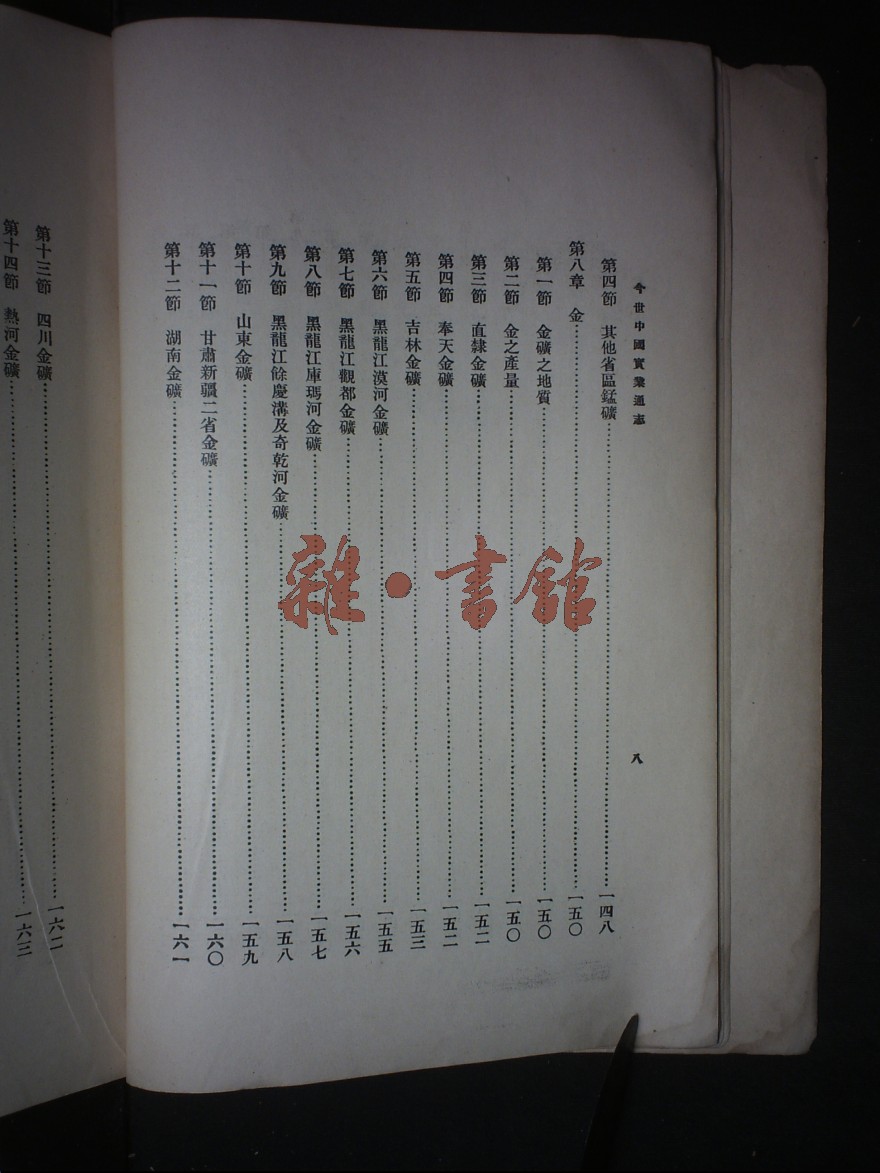 今世中國實業通志
八
第四節 其他省區錳礦……一四八
第八章 金……一五〇
第一節 金礦之地質……一五〇
第二節 金之產量……一五〇
第三節 直隸金礦……一五二
第四節 奉天金礦……一五二
第五節 吉林金礦……一五三
第六節 黑龍江漠河金礦……一五五
第七節 黑龍江觀都金礦……一五六
第八節 黑龍江庫瑪河金礦……一五七
第九節 黑龍江餘慶溝及奇乾河金礦……一五八
第十節 山東金礦……一五九
第十一節 甘肅新疆二省金礦……一六〇
第十二節 湖南金礦……一六一
第十三節 四川金礦……一六二
第十四節 熱河金礦……一六三
雜·書館